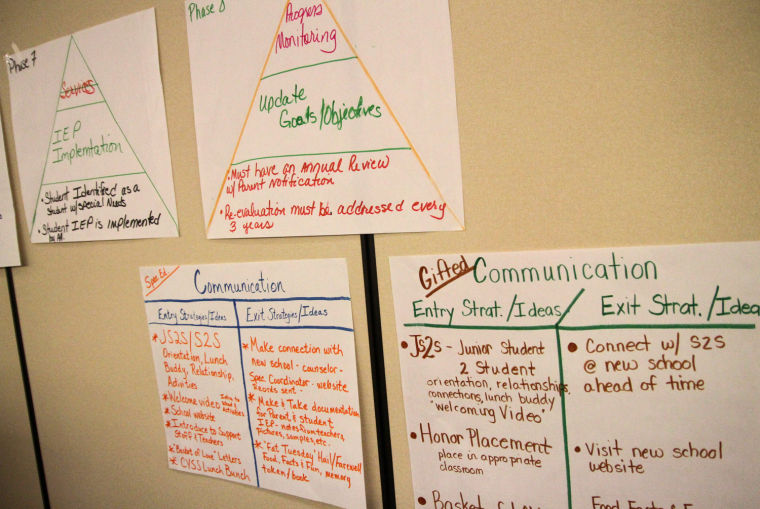 Phase 7
Services
IEP
Implemntation
• Student Identified as a
Student w/special Needs
• Student IEP is implemented
by All
Phase 8
Progress
Monitoring
Update
Goals/Objectives
• Must have an Annual Review
w/Parent Notification
• Re-evaluation must be addressed every
3 years
Spec Ed.
Communication
Entry Strategies/Ideas
* JS2S/S2S
Orientation, Lunch
Buddy, Relationship,
Activities
* Welcome video
* School website
* Introduce to Support
Staff & Teachers
* "Basket of Love" Letters
* CYSS Lunch Bunch
Exit Strategies/Ideas
* Make connection with
new school - counselor -
Spec. Coordinator - website
Records sent -
* Make & Take documentation
for Parent & student
IEP - notes from teachers,
pictures, samples, etc.
* "Fat Tuesday" Hail/Farewell
Food, Facts & Fun, memory
token/book
Gifted Communication
Entry Strat./Ideas
• JS2S - Junior Student
2 Student
orientation, relationships,
connections, lunch buddy
"Welcoming Video"
• Honor Placement
place in appropriate
classroom
• Basket
Exit Strat./Idea
• Connect w/ S2S
@ new school
ahead of time
• Visit new school
website
Food Facts &